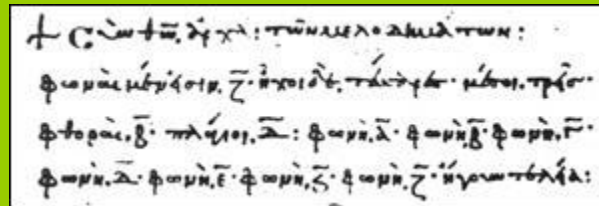 τῶν μελοδημάτων:
φωναὶ μέν εἰσιν. ζ̄· ἦχοι δὲ, μέσοι, τρεῖς·
φθοραὶ, β̄· πλάγιοι, δ̄: φωνὴ, ᾱ· φωνὴ, β̄· φωνὴ, γ̄·
φωνὴ, δ̄· φωνὴ, ε̄· φωνὴ, ς̄· φωνὴ, ζ̄· ἤγουν τελεία: